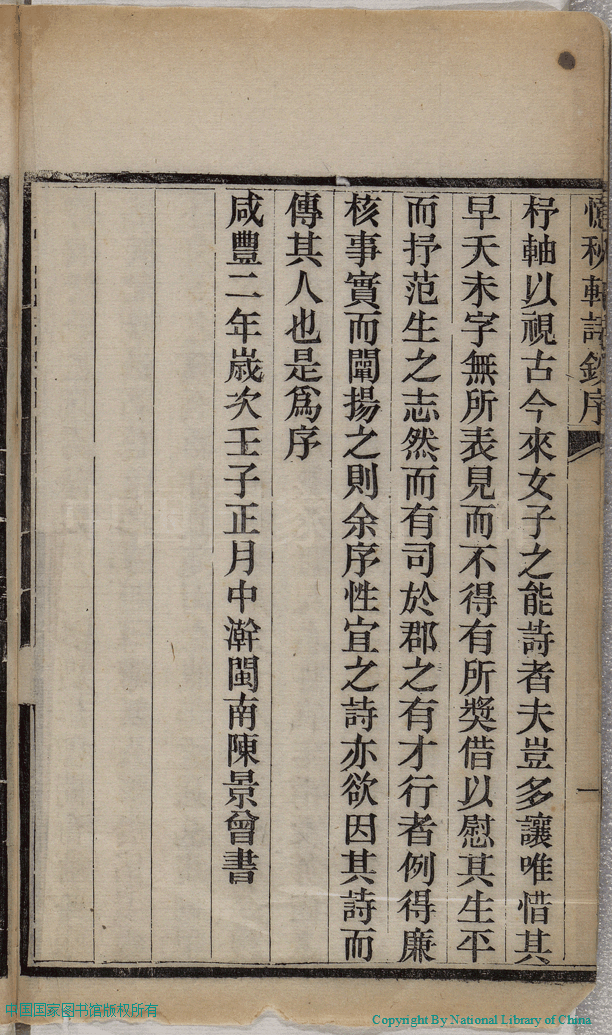 憶秋軒詩鈔序
一
杼軸以視古今來女子之能詩者夫豈多讓唯惜其
早夭未字無所表見而不得有所獎借以慰其生平
而抒范生之志然而有司於郡之有才行者例得廉
核事實而闡揚之則余序性宜之詩亦欲因其詩而
傳其人也是爲序
咸豐二年歲次壬子正月中澣閩南陳景曾書
中国国家图书馆版权所有
Copyright By National Library of China